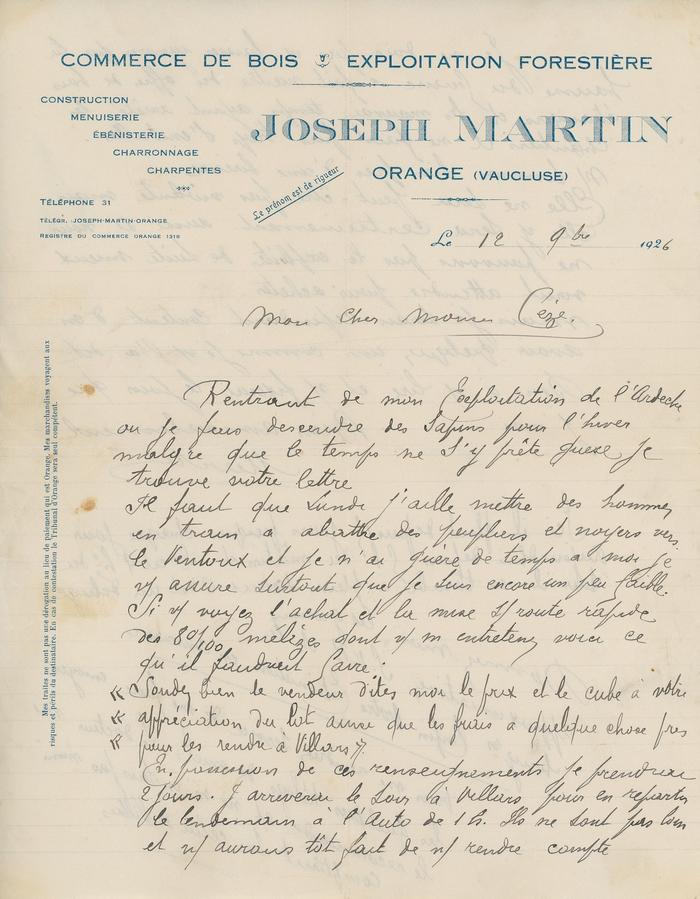 COMMERCE DE BOIS EXPLOITATION FORESTIÈRE
CONSTRUCTION
MENUISERIE
ÉBÉNISTERIE
CHARRONNAGE
CHARPENTES
JOSEPH MARTIN
ORANGE (VAUCLUSE)
Le prénom est de rigueur
TÉLÉPHONE 31
TÉLÉGR. JOSEPH-MARTIN-ORANGE
REGISTRE DU COMMERCE ORANGE 1318
Le 12 9bre 1926
Mon Cher Monsieur Cèze.
Mes traites ne sont pas une dérogation au lieu de paiement qui est Orange. Mes marchandises voyagent aux
risques et périls du destinataire. En cas de contestation le Tribunal d'Orange sera seul compétent.
Rentrant de mon Exploitation de l'Ardèche
ou je fais descendre des Sapins pour l'hiver
malgre que le temps ne s'y prête guere je
trouve votre lettre
Il faut que Lundi j'aille mettre des hommes
en train a abattre des peupliers et noyers vers
le Ventoux et je n'ai guère de temps a moi je
v/ assure surtout que je suis encore un peu faible.
Si v/ voyez l'achat et la mise s/ route rapide
des 80/100 mélèzes dont v/ m entretenez voici ce
qu'il faudrait faire :
« Sondez bien le vendeur dites moi le prix et le cube à votre
« appréciation du lot ainsi que les frais a quelque chose pres
« pour les rendre à Villars »
En possession de ces renseignements je prendrai
2 jours. J arriverai le Soir à Villars pour en repartir
le lendemain à l'Auto de 1 h. Ils ne sont pas loin
et v/ aurons tôt fait de n/ rendre compte